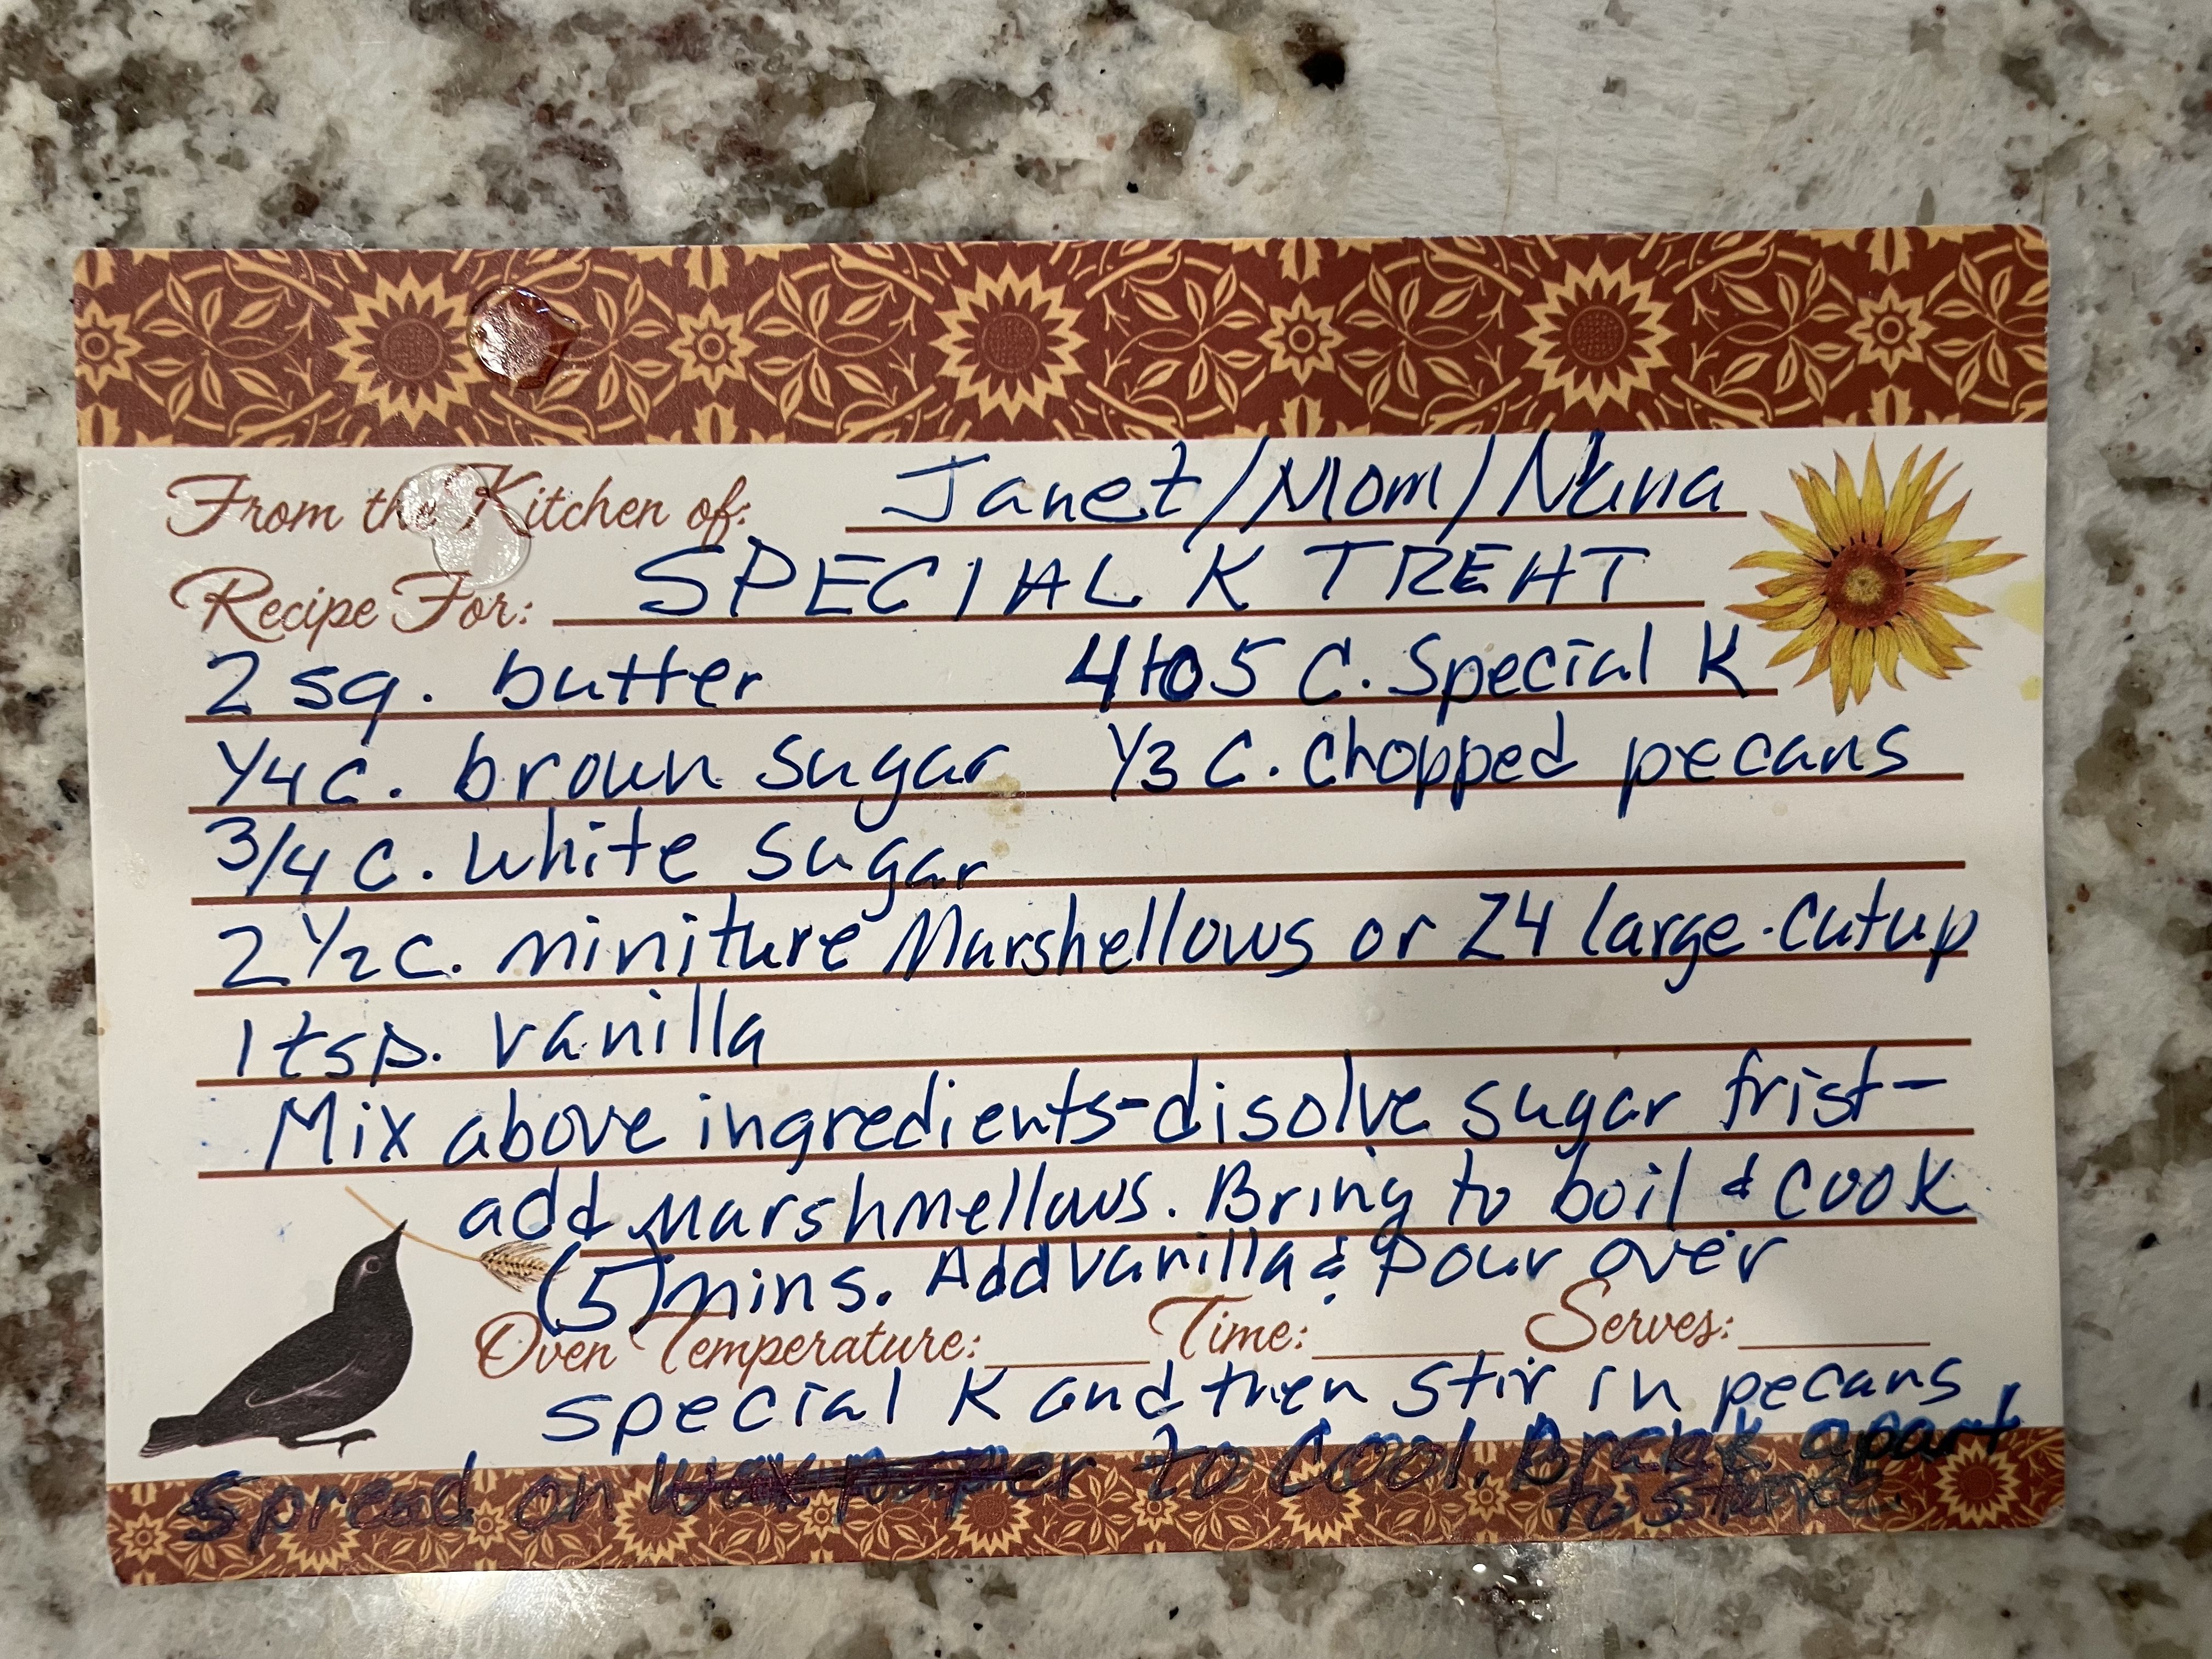 From the Kitchen of: Janet/Mom/Nana
Recipe For: SPECIAL K TREAT
2 sq. butter 4 to 5 C. Special K
1/4 c. brown sugar 1/3 C. chopped pecans
3/4 c. white sugar
2 1/2 c. miniture Marshellows or 24 large-cutup
1 tsp. vanilla
Mix above ingredients-disolve sugar frist-
add marshmellows. Bring to boil & cook
(5) mins. Add vanilla & pour over
Oven Temperature: Time: Serves:
special K and then stir in pecans
Spread on wax paper to cool. Break apart
to store.